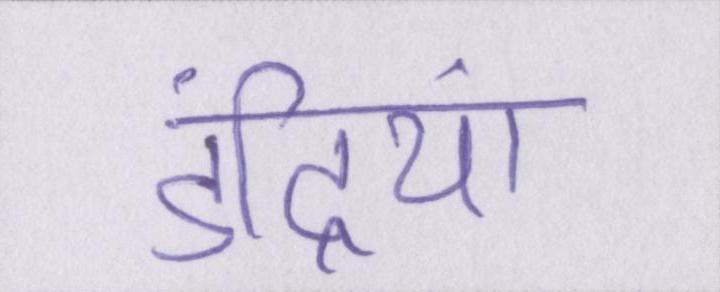 इंद्रियां